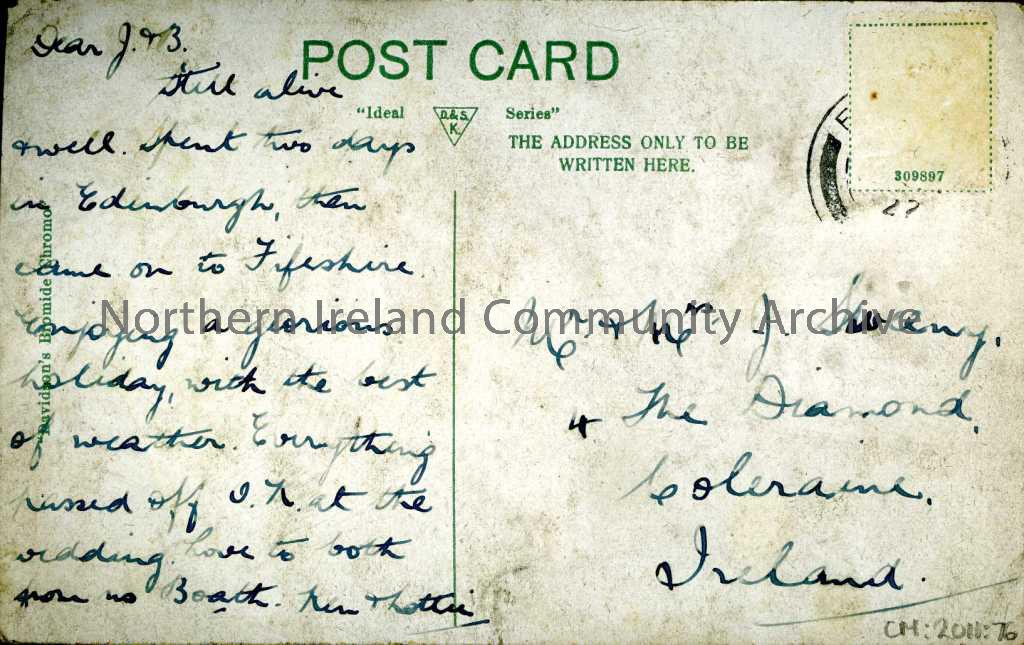 Dear J. & B.
Still alive
& well. Spent two days
in Edinburgh, then
came on to Fifeshire.
Enjoying a glorious
holiday, with the best
of weather. Everything
passed off O.K. at the
wedding. Love to both
from us Boath. Ken & Lottie
"Davidson's Bromide Chromo"
POST CARD
"Ideal D.&S. K. Series"
THE ADDRESS ONLY TO BE
WRITTEN HERE.
309897
27
Mr & Mrs J.
4 The Diamond,
Coleraine,
Ireland.
Northern Ireland Community Archive
CM:2011: